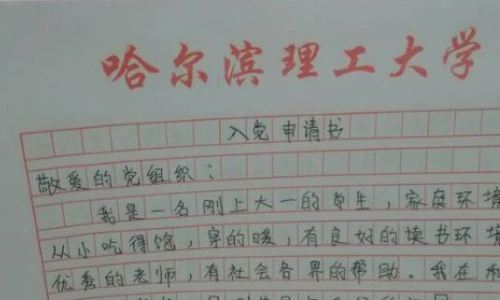 哈尔滨理工大学
入党申请书
敬爱的党组织：
我是一名刚上大一的学生，家庭环境
从小吃得饱，穿的暖，有良好的读书环境
优秀的老师，有社会各界的帮助。我在